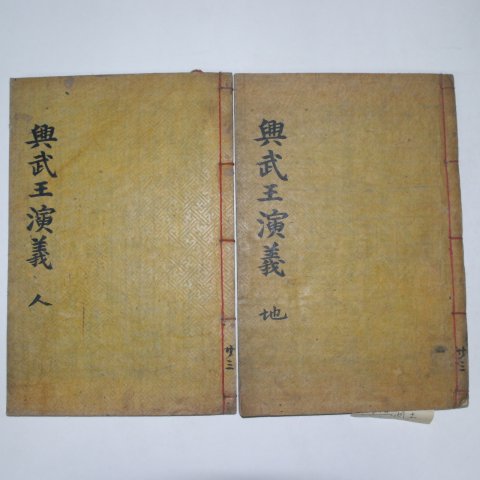 興武王演義 人
廿三
興武王演義 地
廿三